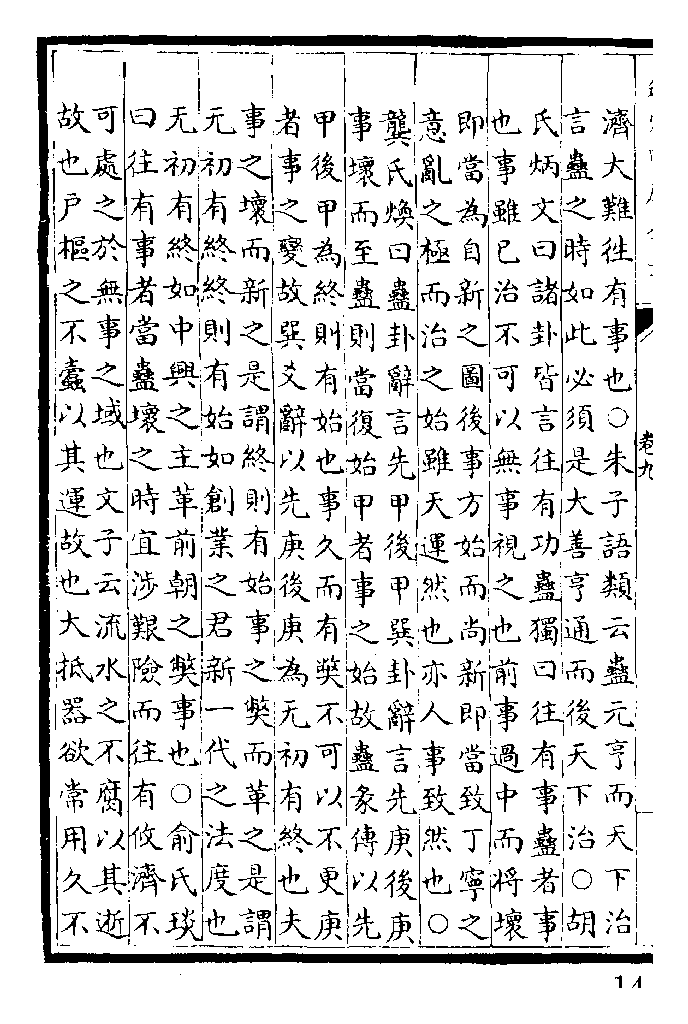 濟大難徃有事也○朱子語類云蠱元亨而天下治
言蠱之時如此必須是大善亨通而後天下治○胡
氏炳文曰諸卦皆言往有功蠱獨曰往有事蠱者事
也事雖已治不可以無事視之也前事過中而將壞
即當為自新之圖後事方始而尚新即當致丁寧之
意亂之極而治之始雖天運然也亦人事致然也○
龔氏煥曰蠱卦辭言先甲後甲巽卦辭言先庚後庚
事壞而至蠱則當復始甲者事之始故蠱彖傳以先
甲後甲為終則有始也事久而有獘不可以不更庚
者事之變故巽爻辭以先庚後庚為无初有終也夫
事之壞而新之是謂終則有始事之獘而革之是謂
无初有終終則有始如創業之君新一代之法度也
无初有終如中興之主革前朝之獘事也○俞氏琰
曰往有事者當蠱壞之時宜涉艱險而往有攸濟不
可處之於無事之域也文子云流水之不腐以其逝
故也戶樞之不蠹以其運故也大抵器欲常用久不
卷九
14